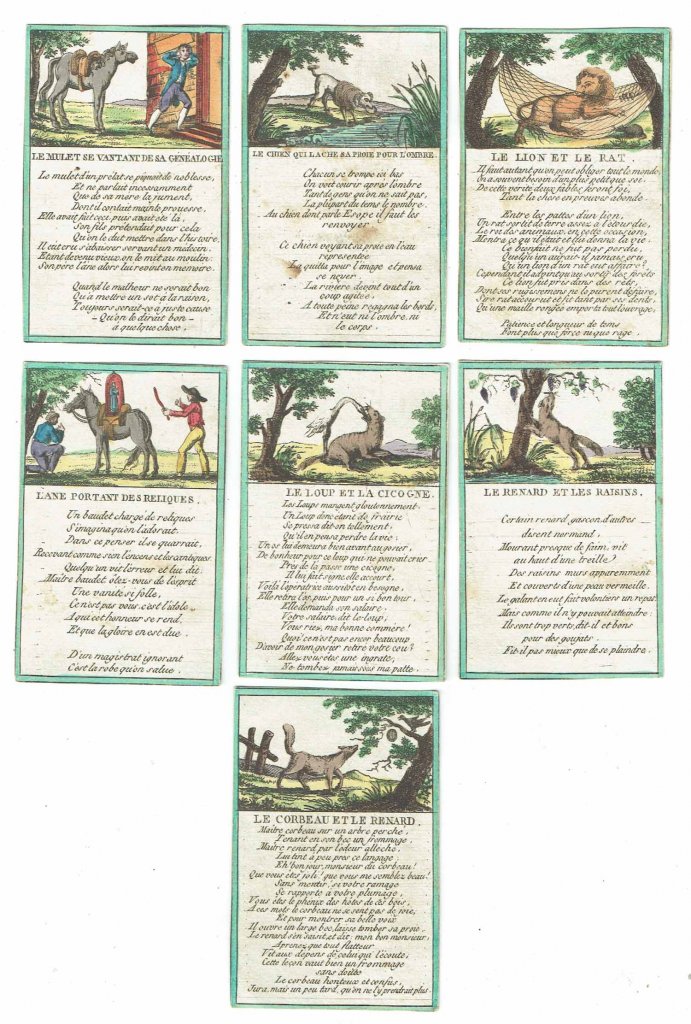 LE MULET SE VANTANT DE SA GENEALOGIE
Le mulet d'un prelat se piquait de noblesse,
Et ne parlait incessamment
Que de sa mere la jument,
Dont il contait mainte prouesse,
Elle avait fait ceci, puis avait été là,
Son fils pretendait pour cela
Qu'on le dut mettre dans l'histoire.
Il eut cru s'abaisser servant un médecin.
Etant devenu vieux, on le mit au moulin
Son pere l'ane alors lui revint en memoire.
Quand le malheur ne serait bon
Qu'a mettre un sot a la raison,
Toujours serait-ce a juste cause
Qu'on le dirait bon
a quelque chose,
LE CHIEN QUI LACHE SA PROIE POUR L'OMBRE.
Chacun se trompe ici bas
On voit courir après l'ombre
Tant de gens qu'on ne sait pas,
La plupart du tems le nombre.
Au chien dont parle Esope il faut les
renvoyer
Ce chien voyant sa proie en l'eau
representee
La quitta pour l'image et pensa
se noyer,
La riviere devent tout d'un
coup agitée,
A toute peine regagna les bords,
Et n'eut ni l'ombre, ni
le corps.
LE LION ET LE RAT.
Il faut autant qu'on peut obliger tout le monde,
On a souvent besoin d'un plus petit que soi.
De cette verité deux fables feront foi,
Tant la chose en preuves abonde
Entre les pattes d'un lion,
Un rat sortit de terre assez à l'étourdie,
Le roi des animaux, en cette occasion,
Montra ce qu'il etait et lui donna la vie.
Ce bienfait ne fut pas perdu,
Quelqu'un aurait-il jamais cru
Qu'un lion d'un rat eut affaire?
Cependant il advint qu'au sortir des forêts
Ce lion fut pris dans des rêts,
Dont ses rugissemens ne le purent defaire,
Sire rat accourut et fit tant par ses dents,
Qu'une maille rongée emporta tout l'ouvrage,
Patience et longueur de tems
Font plus que force ni que rage.
L'ANE PORTANT DES RELIQUES.
Un baudet chargé de reliques
S'imagina qu'on l'adorait.
Dans ce penser il se quarrait,
Recevant comme sien l'encens et les cantiques
Quelqu'un vit l'erreur et lui dit:
Maître baudet ôtez-vous de l'esprit
Une vanité si folle,
Ce n'est pas vous, c'est l'idole
A qui cet honneur se rend,
Et que la gloire en est due.
D'un magistrat ignorant
C'est la robe qu'on salue.
LE LOUP ET LA CICOGNE.
Les Loups mangent gloutonnement.
Un Loup donc étant de frairie
Se pressa dit on tellement.
Qu'il en pensa perdre la vie:
Un os lui demeura bien avant au gosier,
De bonheur pour ce loup qui ne pouvait crier
Près de la passe une cicogne,
Il lui fait signe, elle accourt,
Voilà l'operatrice aussitôt en besogne,
Elle retira l'os, puis pour un si bon tour,
Elle demanda son salaire.
Votre salaire dit le loup,
Vous riez, ma bonne commère!
Quoi! ce n'est pas encor beaucoup
D'avoir de mon gosier retiré votre cou?
Allez, vous êtes une ingrate,
Ne tombez jamais sous ma patte.
LE RENARD ET LES RAISINS.
Certain renard gascon, d'autres
disent normand,
Mourant presque de faim, vit
au haut d'une treille
Des raisins murs apparemment
Et couverts d'une peau vermeille.
Le galant en eut fait volontiers un repas
Mais comme il n'y pouvait atteindre
Ils sont trop verts, dit-il et bons
pour des goujats.
Fit-il pas mieux que de se plaindre.
LE CORBEAU ET LE RENARD.
Maître corbeau sur un arbre perché,
Tenant en son bec un frommage,
Maitre renard par l'odeur alleché,
Lui tint a peu pres ce langage
Eh! bonjour, monsieur du corbeau!
Que vous etes joli! que vous me semblez beau!
Sans mentir, si votre ramage
Se rapporte à votre plumage,
Vous êtes le phénix des hôtes de ces bois,
A ces mots le corbeau ne se sent pas de joie,
Et pour montrer sa belle voix
Il ouvre un large bec, laisse tomber sa proie
Le renard s'en saisit, et dit: mon bon monsieur,
Aprenez que tout flatteur
Vit aux dépens de celui qui l'écoute,
Cette lecon vaut bien un frommage
sans doute
Le corbeau honteux et confus,
Jura, mais un peu tard, qu'on ne l'y prendrait plus.